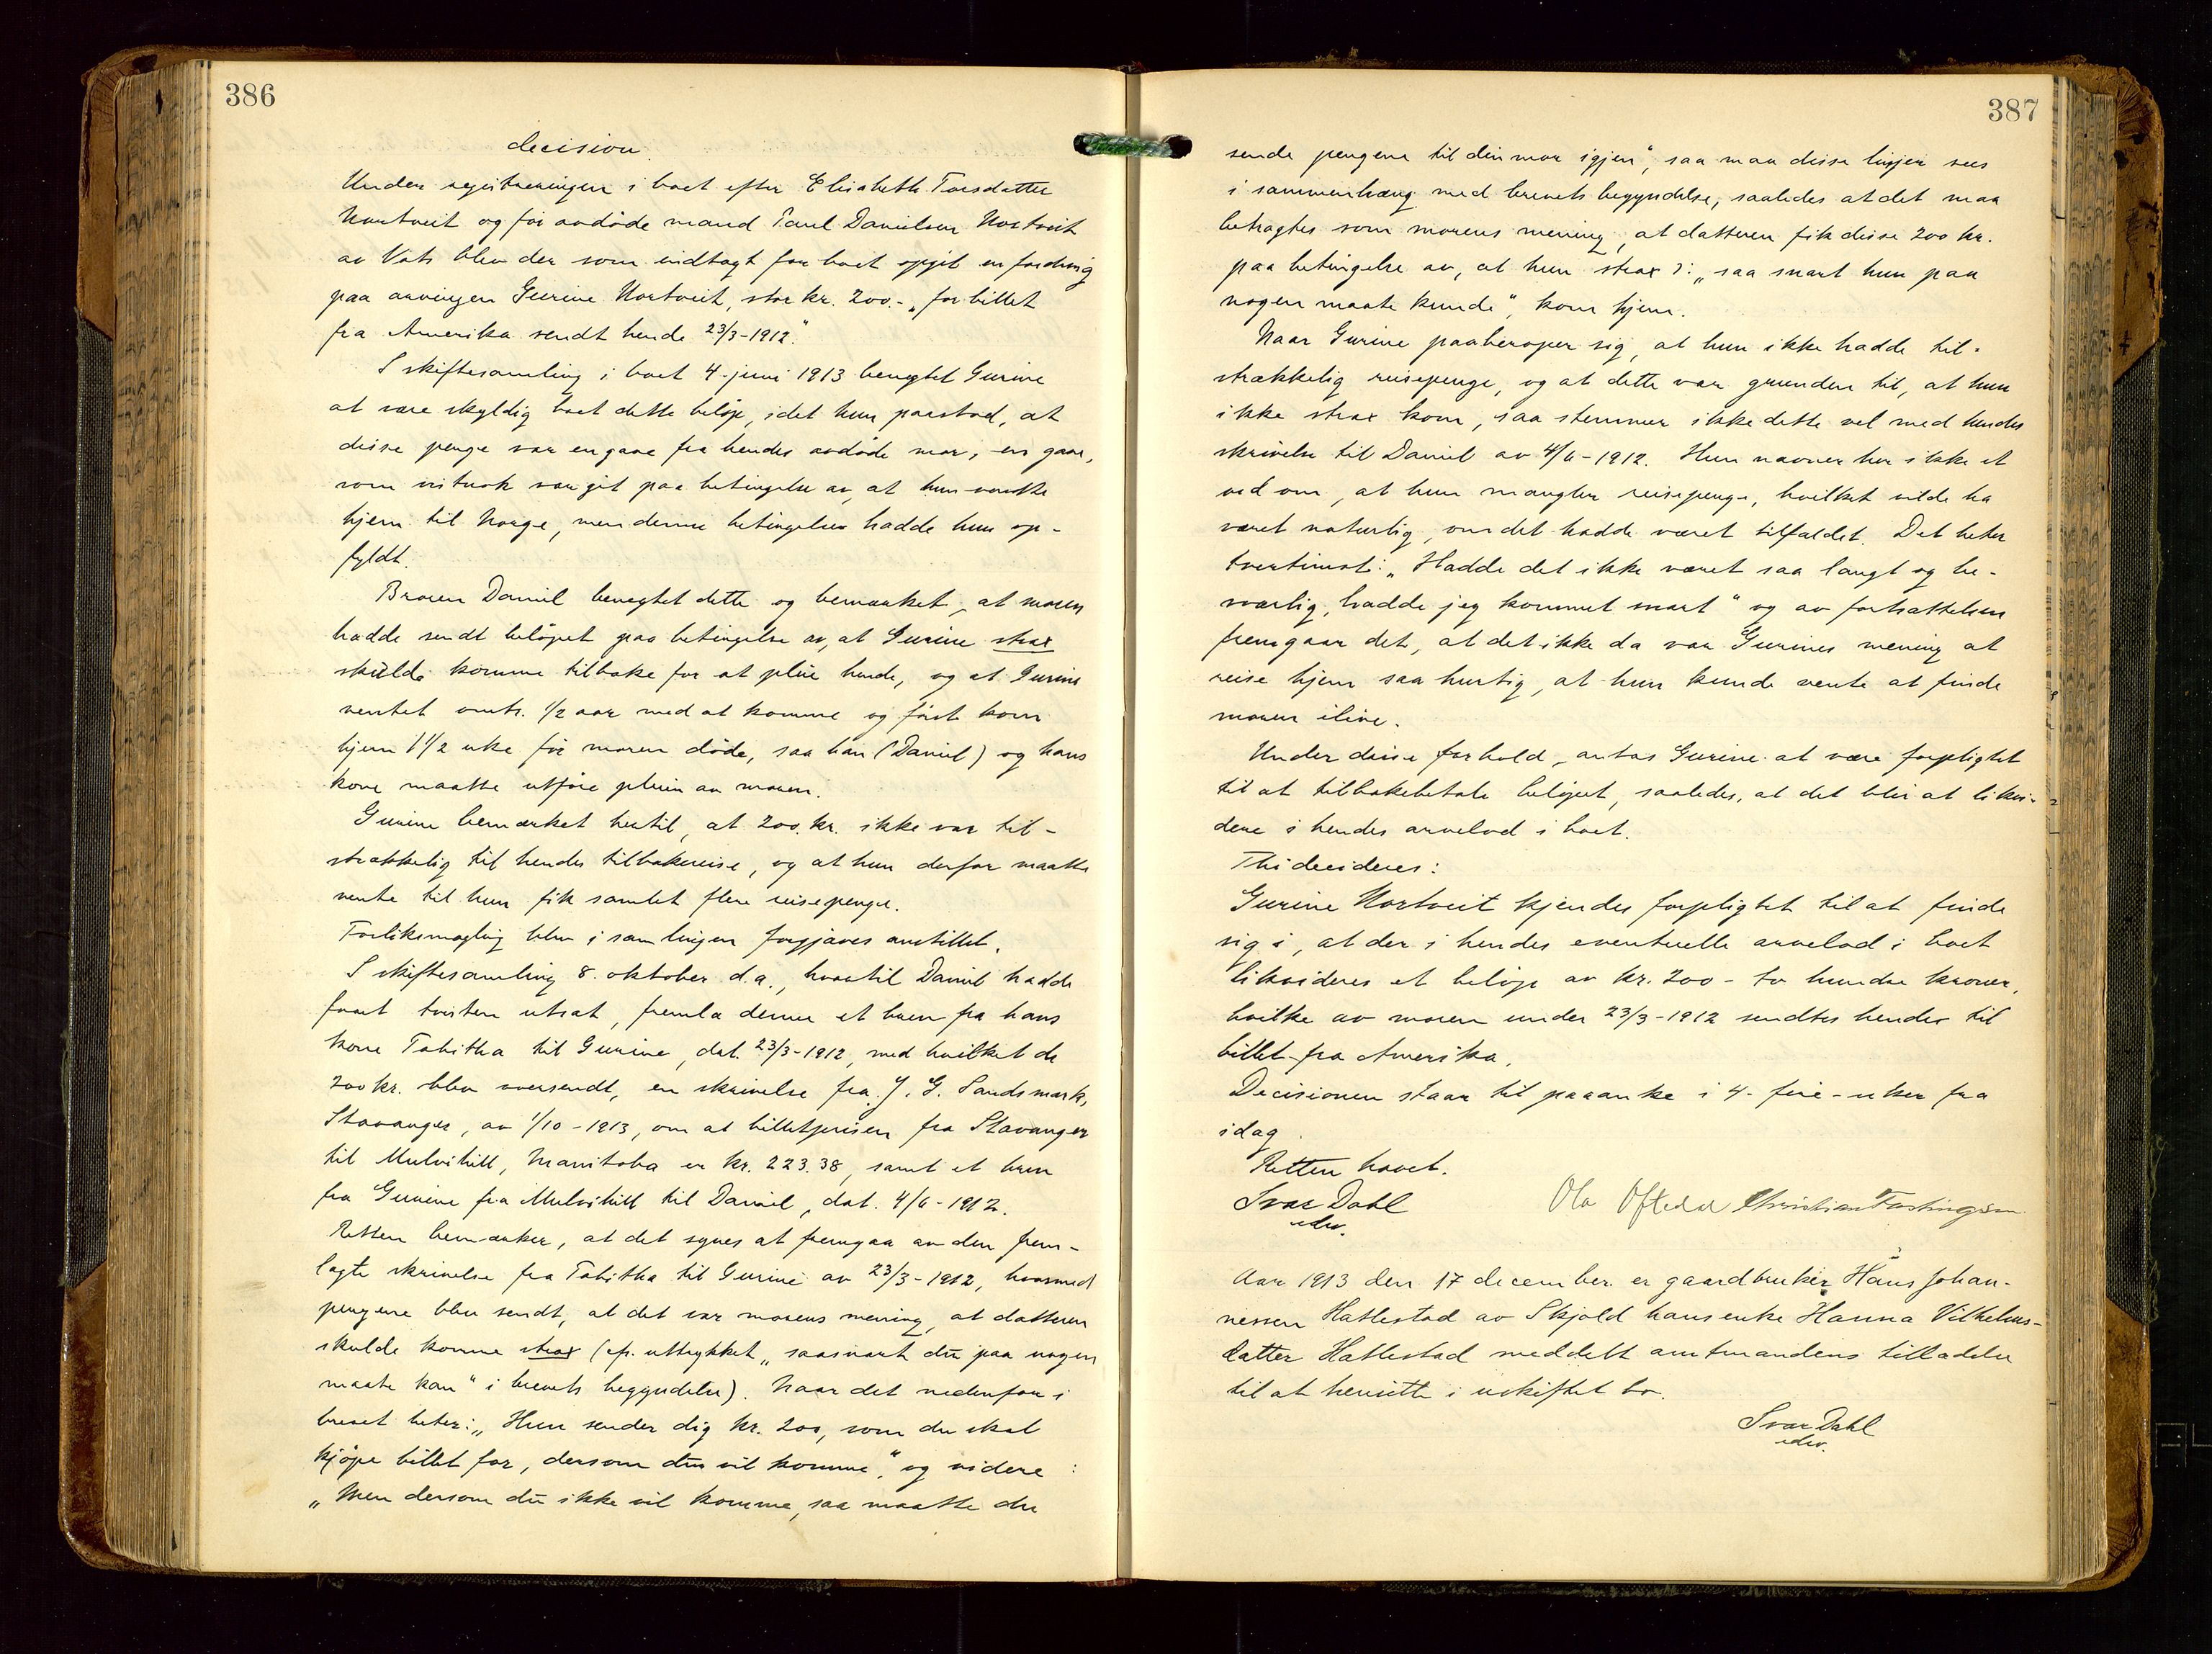 386
decision.
Under registreringen i boet efter Elisabeth Torsdatter
Nortveit og før avdøde mand Paul Danielsen Nortveit
av Vats blev der som indtægt for boet opgit en fordring
paa arvingen Gurine Nortveit, stor kr. 200.- „for billet
fra Amerika sendt hende 23/3-1912."
I skiftesamling i boet 4. juni 1913 benegtet Gurine
at være skyldig boet dette beløp, idet hun paastod, at
disse penge var en gave fra hendes avdøde mor, en gave,
som vistnok var git paa betingelse av, at hun vendte
hjem til Norge, men denne betingelse hadde hun op-
fyldt.
Broren Daniel benegtet dette og bemerket, at moren
hadde sendt beløpet paa betingelse av, at Gurine strax
skulde komme tilbake for at pleie hende, og at Gurine
ventet omtr. 1/2 aar med at komme og først kom
hjem 1 1/2 uke før moren døde, saa han (Daniel) og hans
kone maatte utføre pleien av moren.
Gurine bemerket hertil, at 200 kr. ikke var til-
strækkelig til hendes tilbakereise, og at hun derfor maatte
vente til hun fik samlet flere reisepenge.
Forliksmægling blev i samlingen forgjæves anstillet.
I skiftesamling 8. oktober d.a., hvortil Daniel hadde
faaet tvisten utsat, fremla denne et brev fra hans
kone Tabitha til Gurine, dat. 23/3-1912, med hvilket de
200 kr. blev oversendt, en skrivelse fra J. G. Sandsmark,
Stavanger, av 1/10-1913, om at billetprisen fra Stavanger
til Mulvihill, Manitoba er kr. 223.38, samt et brev
fra Gurine fra Mulvihill til Daniel, dat. 4/6-1912.
Retten bemerker, at det synes at fremgaa av den frem-
lagte skrivelse fra Tabitha til Gurine av 23/3-1912, hvormed
pengene blev sendt, at det var morens mening, at datteren
skulde komme strax (cfr. uttrykket „saasnart du paa nogen
maate kan" i brevets begyndelse). Naar det nedenfor i
brevet heter: „Hun sender dig kr. 200, som du skal
kjøpe billet for, dersom du vil komme," og videre:
„Men dersom du ikke vil komme, saa maatte du
387
sende pengene til din mor igjen", saa maa disse linjer sees
i sammenhæng med brevets begyndelse, saaledes at det maa
betragtes som morens mening, at datteren fik disse 200 kr.
paa betingelse av, at hun strax ɔ: „saa snart hun paa
nogen maate kunde", kom hjem.
Naar Gurine paaberoper sig, at hun ikke hadde til-
strækkelig reisepenge, og at dette var grunden til, at hun
ikke strax kom, saa stemmer ikke dette vel med hendes
skrivelse til Daniel av 4/6-1912. Hun nævner her ikke et
ord om, at hun mangler reisepenge, hvilket vilde ha
været naturlig, om det hadde været tilfældet. Det heter
tvertimot: „Hadde det ikke været saa langt og be-
sværlig, hadde jeg kommet snart" og av fortsættelsen
fremgaar det, at det ikke da var Gurines mening at
reise hjem saa hurtig, at hun kunde vente at finde
moren ilive.
Under disse forhold antas Gurine at være forpligtet
til at tilbakebetale beløpet, saaledes, at det blir at likvi-
dere i hendes arvelod i boet.
Thi decideres:
Gurine Nortveit kjendes forpligtet til at finde
sig i, at der i hendes eventuelle arvelod i boet
likvideres et beløp av kr. 200 - to hundre kroner,
hvilke av moren under 23/3-1912 sendtes hende til
billet fra Amerika.
Decisionen staar til paaanke i 4 - fire - uker fra
idag.
Retten hævet.
Ivar Dahl
edsv.
Ola Oftedal Christian Fastingsen
Aar 1913 den 17 december er gaardbruker Hans Johan-
nessen Hatlestad av Skjold hans enke Hanna Vilhelms-
datter Hatlestad meddelt amtmandens tilladelse
til at hensitte i uskiftet bo.
Ivar Dahl
edsv.